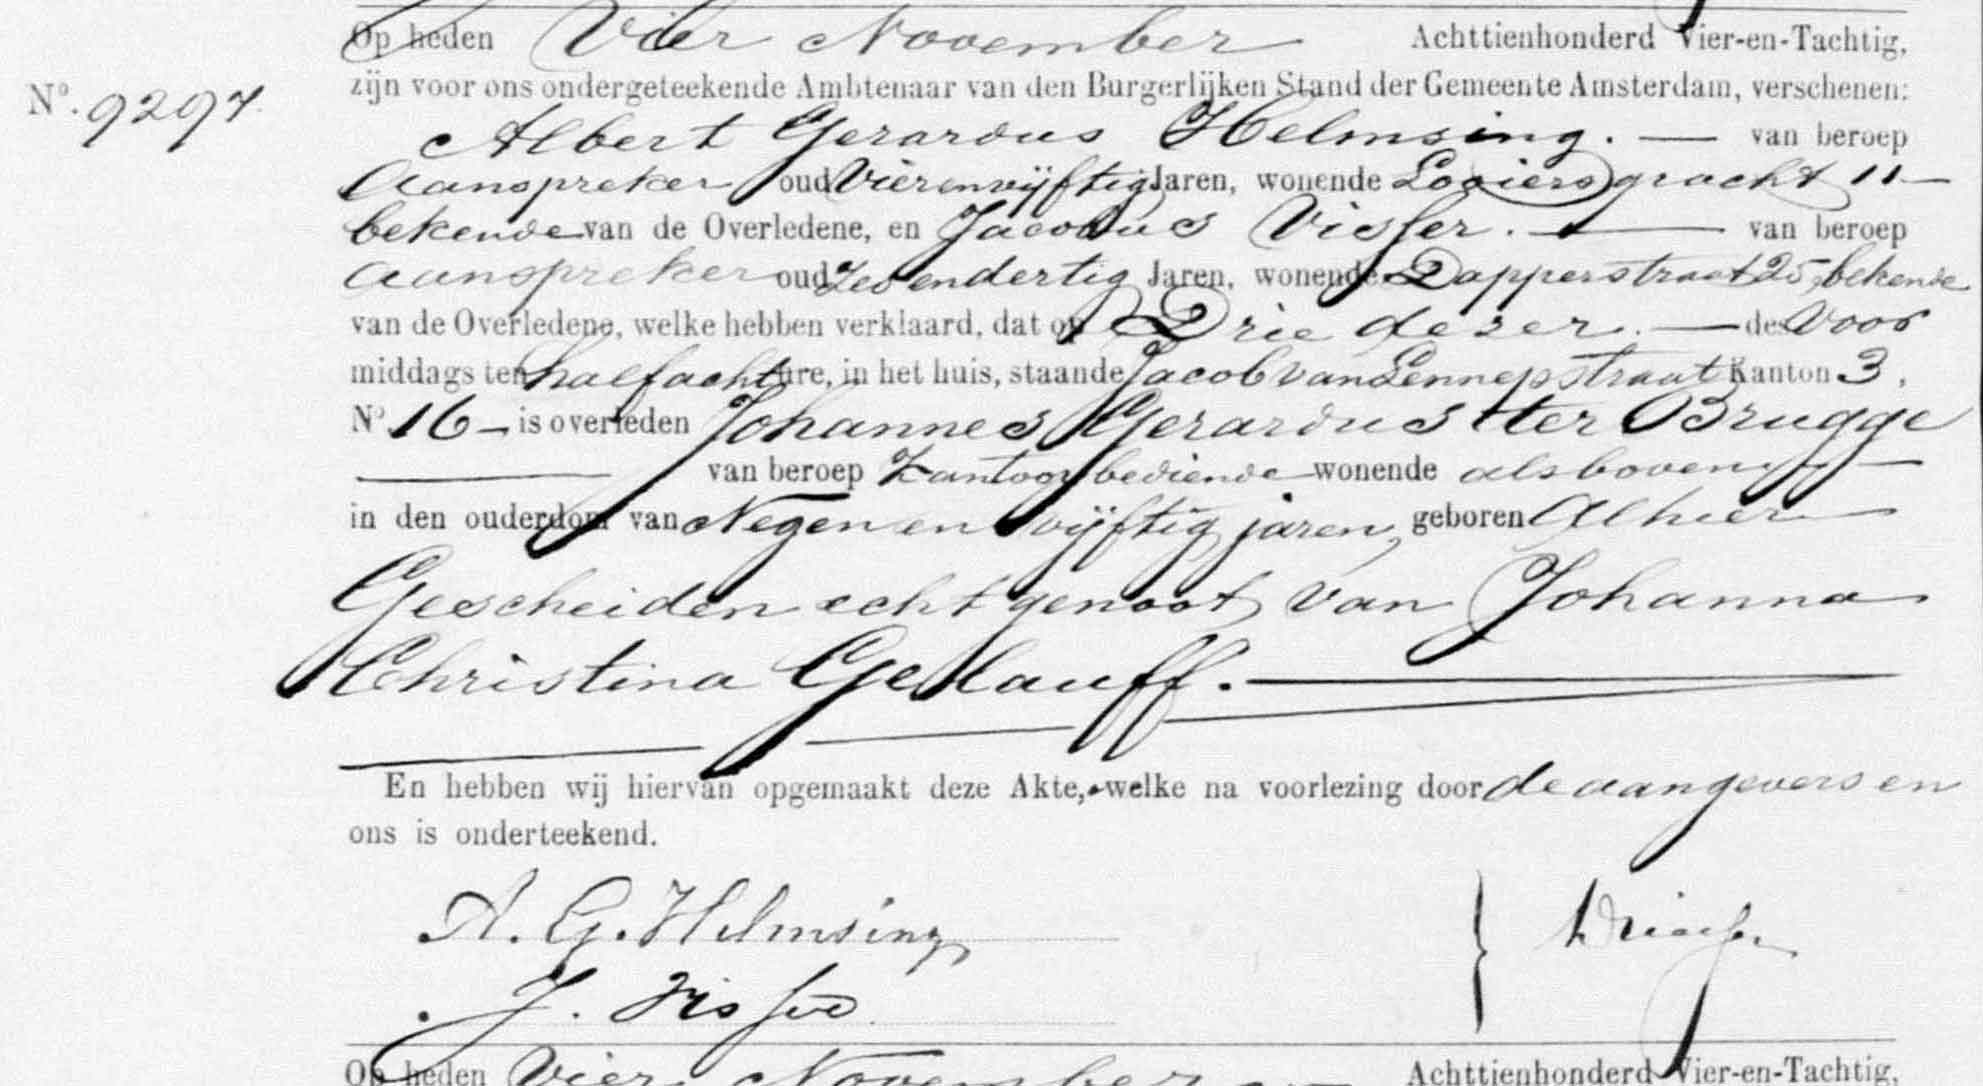 Op heden Vier November Achttienhonderd Vier-en-Tachtig,
zijn voor ons ondergeteekende Ambtenaar van den Burgerlijken Stand der Gemeente Amsterdam, verschenen:
No. 9297.
Albert Gerardus Helmsing. — van beroep
Aanspreker oud Vierenvijftig Jaren, wonende Looiersgracht 11 —
bekende van de Overledene, en Jacobus Visser. — van beroep
Aanspreker oud Zevendertig Jaren, wonende Dapperstraat 25, bekende
van de Overledene, welke hebben verklaard, dat op Drie dezer. — des Voor
middags ten half acht ure, in het huis, staande Jacob van Lennepstraat Kanton 3,
No 16 — is overleden Johannes Gerardus ter Brugge
— van beroep Kantoorbediende wonende als boven —
in den ouderdom van Negen en vijftig jaren, geboren Alhier
Gescheiden echtgenoot van Johanna
Christina Gelauff. —
En hebben wij hiervan opgemaakt deze Akte, welke na voorlezing door de aangevers en
ons is onderteekend.
A. G. Helmsing
J. Visser
Op heden Vier November — Achttienhonderd Vier-en-Tachtig,